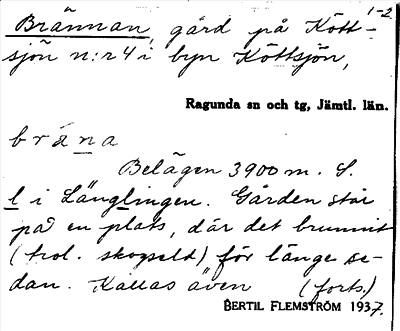 1-2.
Brännan, gård på Kött-
sjön n:r 4 i byn Köttsjön,
Ragunda sn och tg, Jämtl. län.
bräna
Belägen 3900 m. S.
l i Länglingen. Gården står
på en plats, där det brunnit
(trol. skogseld) för länge se-
dan. Kallas även (forts.)
BERTIL FLEMSTRÖM 1937.